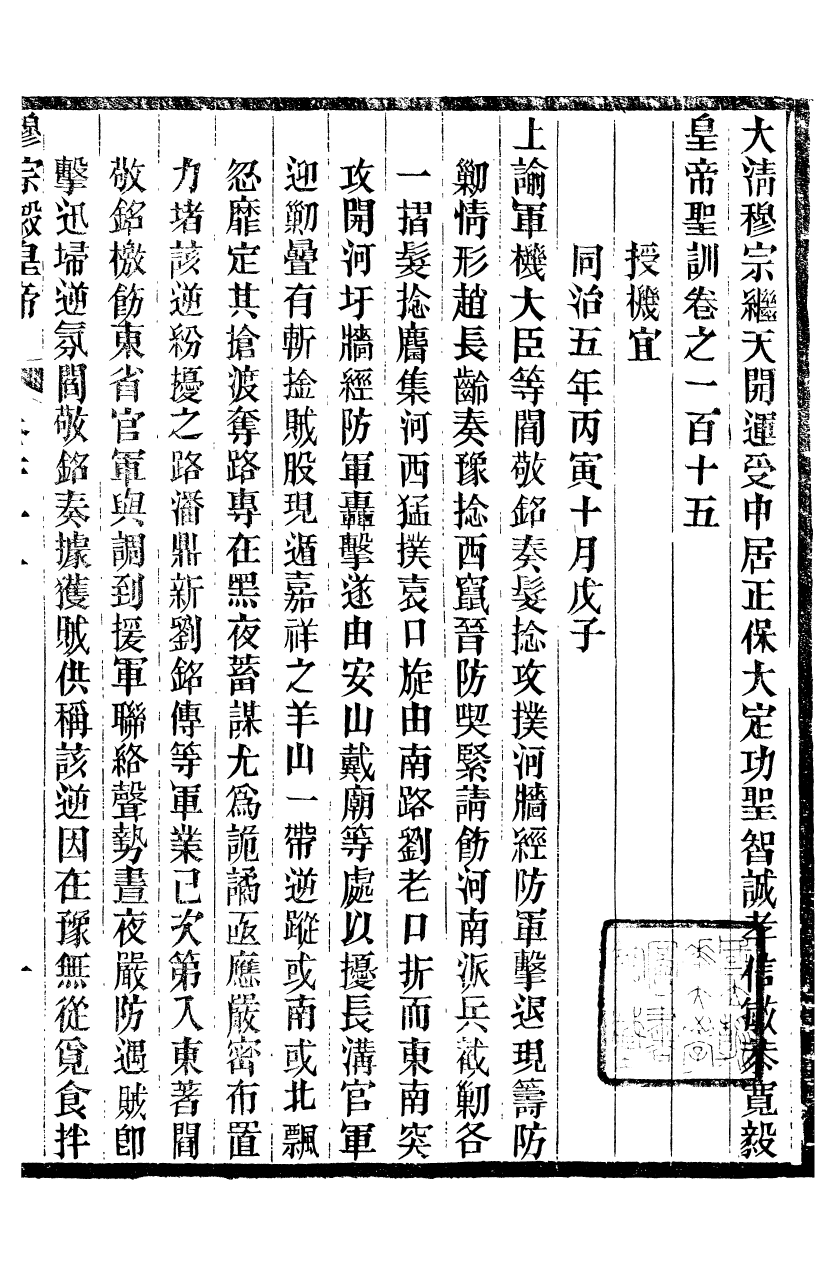 大清穆宗繼天開運受中居正保大定功聖智誠孝信敏恭寬毅
皇帝聖訓卷之一百十五
授機宜
同治五年丙寅十月戊子
上諭軍機大臣等閻敬銘奏髮捻攻撲河牆經防軍擊退現籌防
勦情形趙長齡奏豫捻西竄晉防喫緊請飭河南派兵截勦各
一摺髮捻麕集河西猛撲袁口旋由南路劉老口折而東南突
攻開河圩牆經防軍轟擊遂由安山戴廟等處以擾長溝官軍
迎勦疊有斬捦賊股現遁嘉祥之羊山一帶逆蹤或南或北飄
忽靡定其搶渡奪路專在黑夜蓄謀尤爲詭譎亟應嚴密布置
力堵該逆紛擾之路潘鼎新劉銘傳等軍業已次第入東著閻
敬銘檄飭東省官軍與調到援軍聯絡聲勢晝夜嚴防遇賊卽
擊迅埽逆氛閻敬銘奏據獲賊供稱該逆因在豫無從覓食拌
穆宗毅皇帝
一